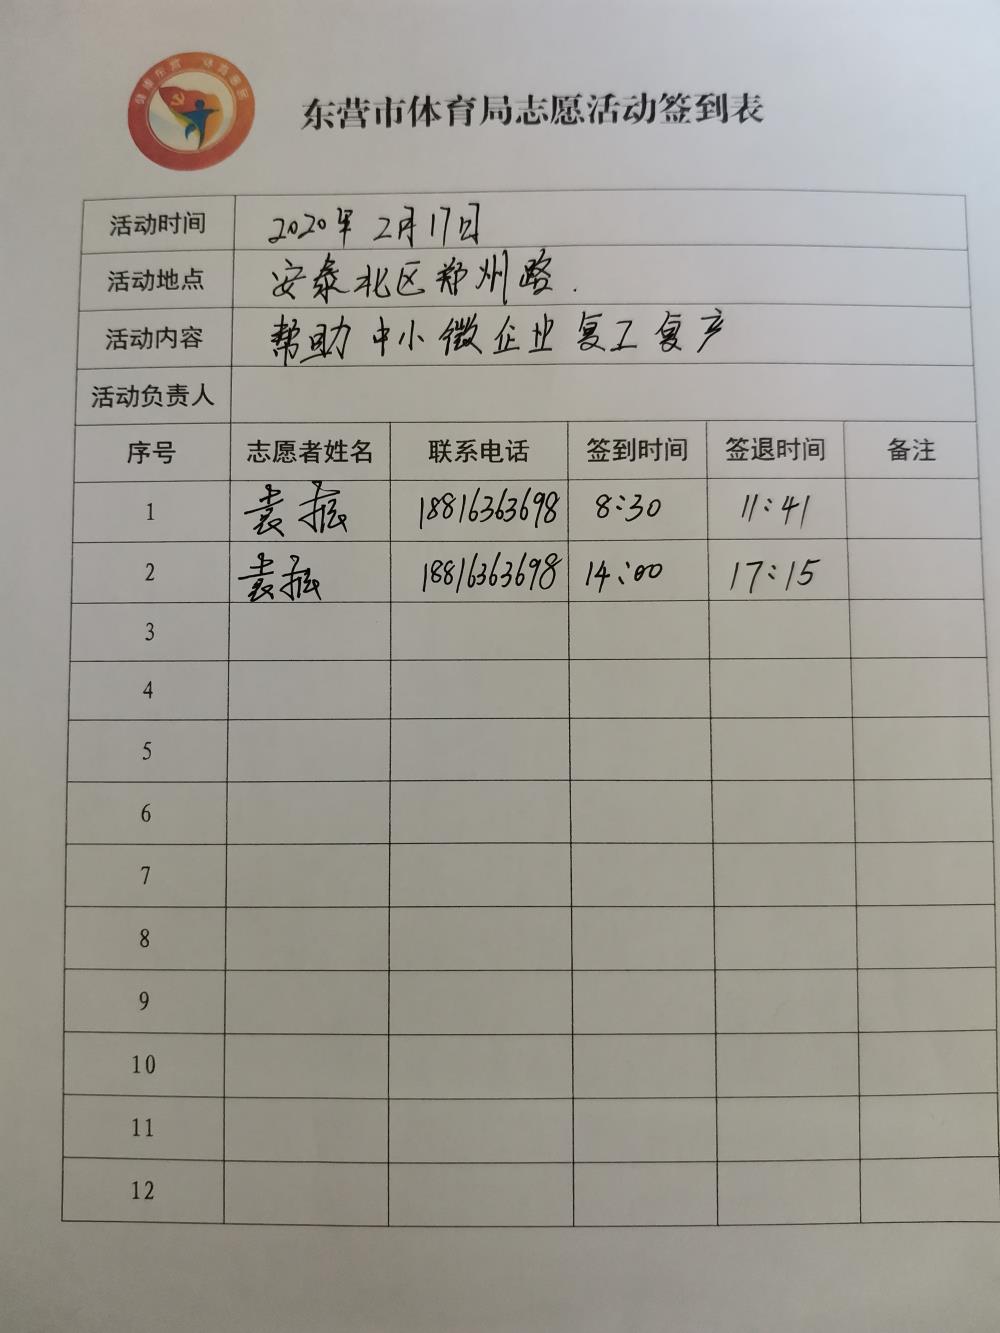 健康东营 体育惠民
东营市体育局志愿活动签到表
活动时间 2020年2月17日
活动地点 安泰北区郑州路.
活动内容 帮助中小微企业复工复产
活动负责人
序号 志愿者姓名 联系电话 签到时间 签退时间 备注
1 袁振 18816363698 8:30 11:41
2 袁振 18816363698 14:00 17:15
3
4
5
6
7
8
9
10
11
12